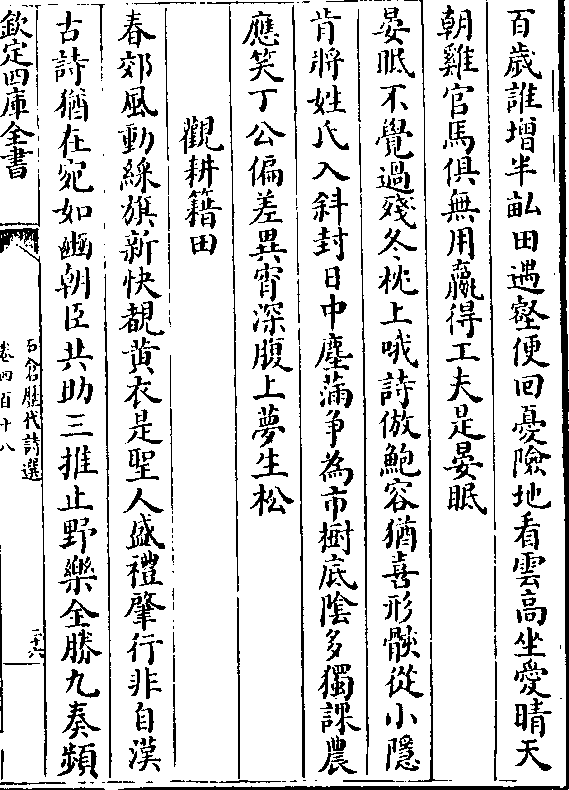 百歲誰增半畝田遇壑便回憂險地看雲高坐愛晴天
朝雞官馬俱無用贏得工夫是晏眠
晏眠不覺過殘冬枕上哦詩倣鮑容猶喜形骸從小隱
肯將姓氏入斜封日中塵滿争為市樹底陰多獨課農
應笑丁公偏差異宵深腹上夢生松
觀耕籍田
春郊風動綵旗新快覩黄衣是聖人盛禮肇行非自漢
古詩猶在宛如豳朝臣共助三推止野樂全勝九奏頻
欽定四庫全書
石倉歷代詩選
卷四百十八
二十六